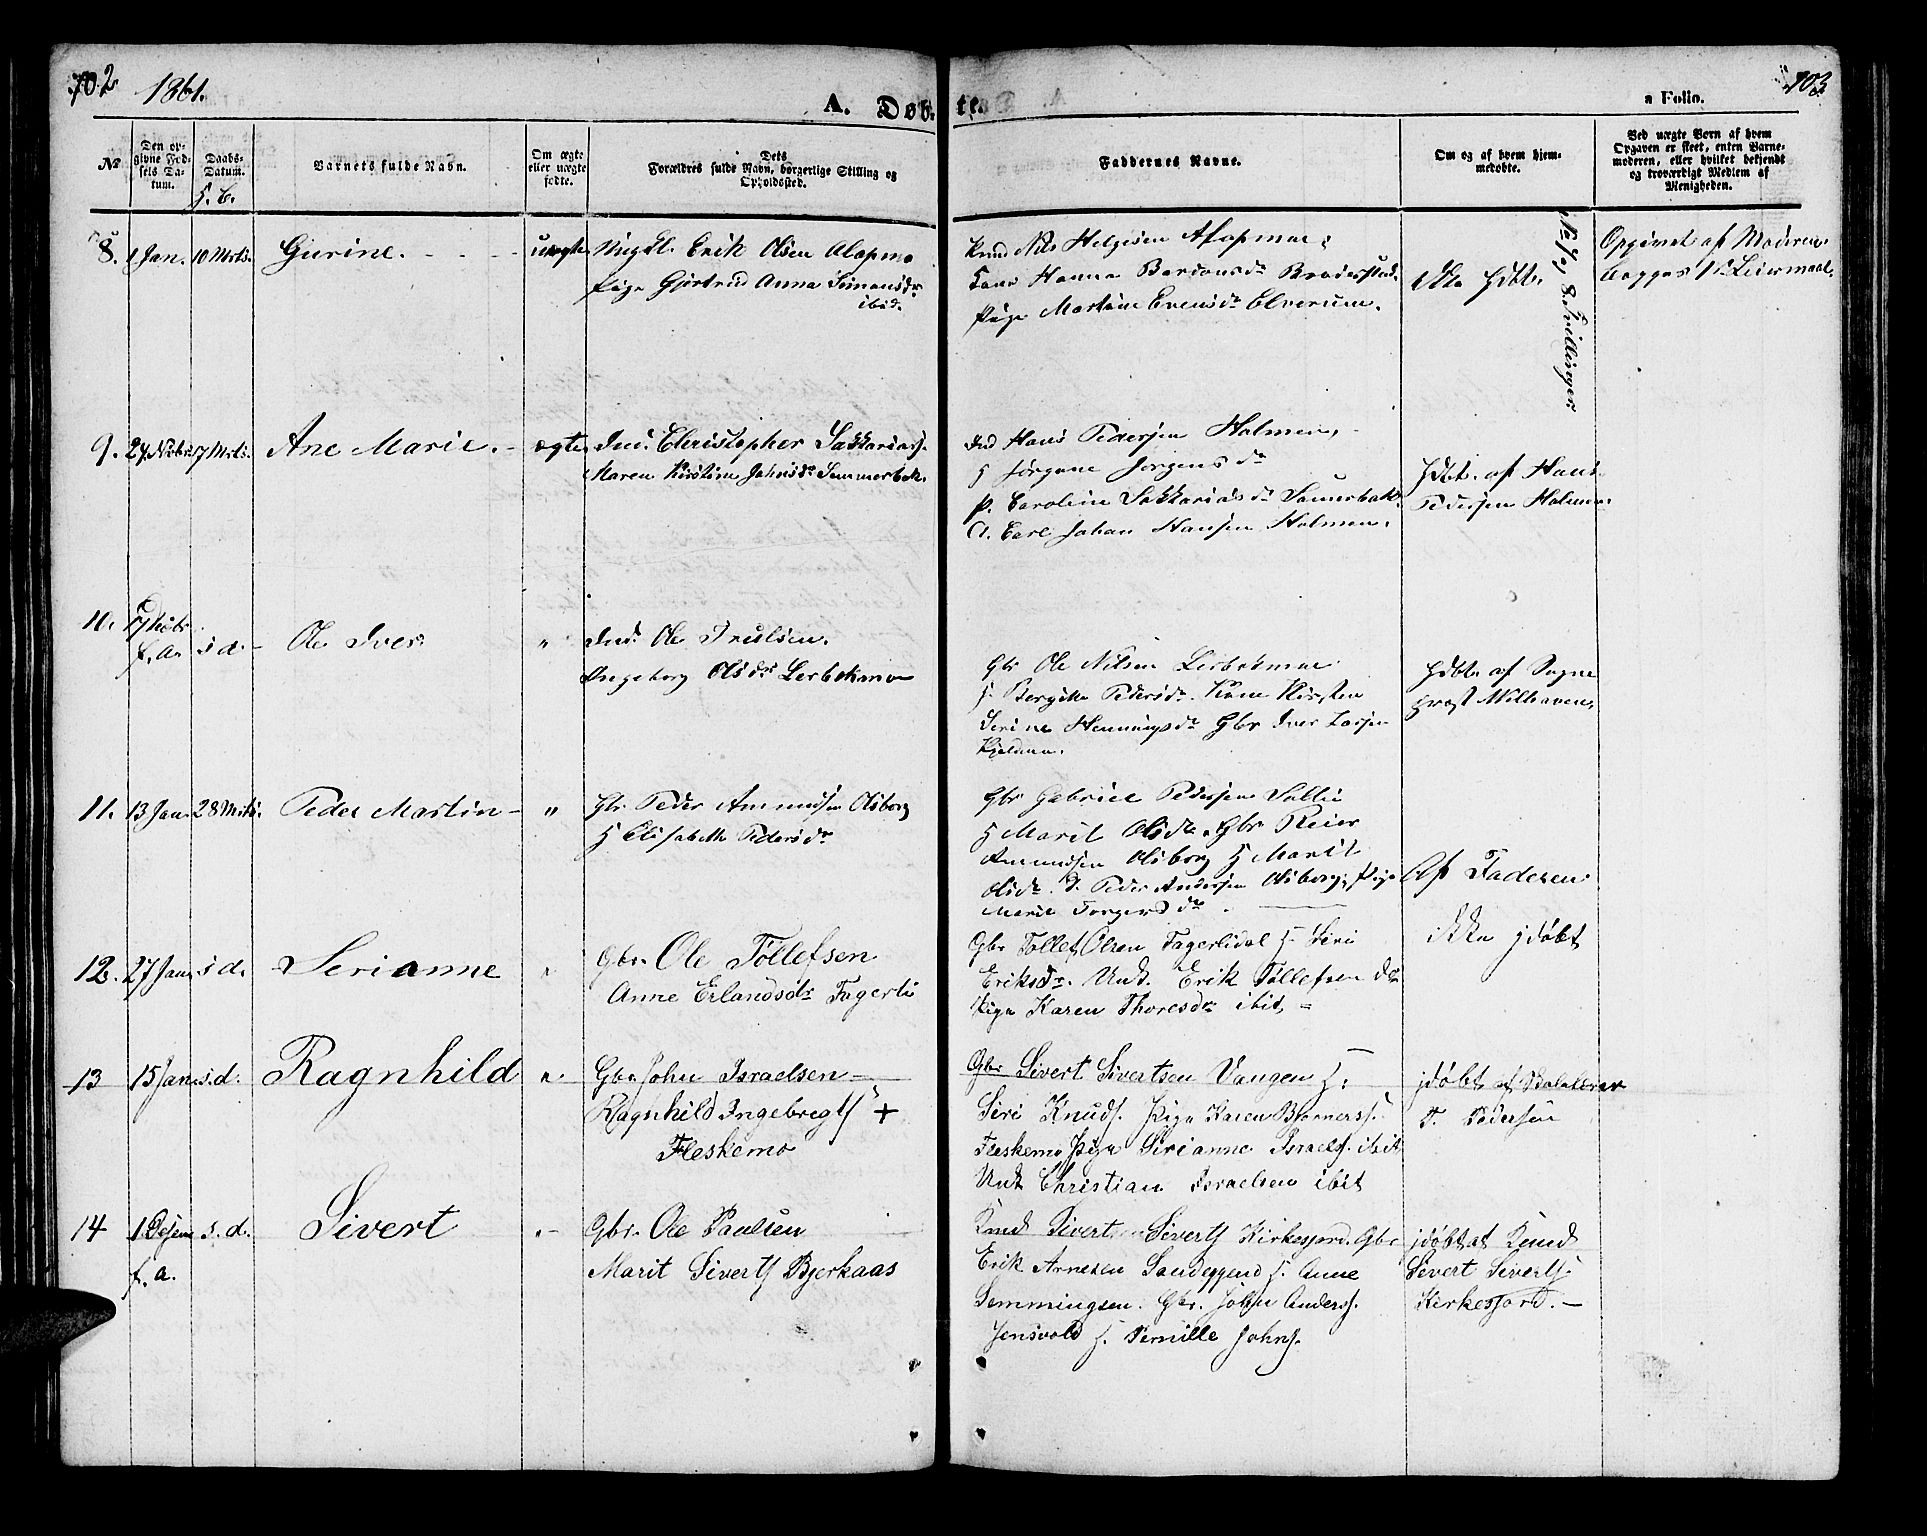 102 1861.
A. Døb-
te.
a Folio.
103
№
Den op-
givne Fød-
sels Da-
tum.
Daabs-
Datum.
Barnets fulde Navn.
Om ægte
eller uægte
fødte.
Dets
Forældres fulde Navn, borgerlige Stilling og
Opholdssted.
Faddernes Navne.
Om og af hvem hjem-
medøbte.
Ved uægte Børn af hvem
Opgaven er skeet, enten Barne-
moderen, eller hvilket bekjendt
og troværdigt Medlem af
Menigheden.
8. 1 Jan. 10 Mrts. Gurine. uægte Ungkl. Erik Olsen Alapmo
Pige Gjertrud Anna Simonsdr
ibid.
Knud Nils Helgesen Alapmoe
Kone Hanna Bardonsdr Braderstad.
Pige Martine Evensdr Elverum.
Ikke hdbt.
No 7 og 8 Tvillinger.
Opgivet af Moderen
begges 1ste Leiermaal.
9. 24 Novbr 17 Mrts. Ane Marie. ægte Ind. Christopher Sakkariass.
Maren Kirstine Johnsdr Sommerbek.
Ind Hans Pedersen Holmen,
H Jørgene Jørgensdr
P. Caroline Sakkariasdr Sommerbak.
U. Carl Johan Hansen Holmen.
Hdbt. af Hans
Pedersen Holmen.
10. Novbr
f. a. s d. Ole Iver " Ind. Ole Trulsen.
Ingeborg Olsdr Lerbekmo
Gbr Ole Nilsen Lerbekmoe
H. Berythe Pedersdr. Kone Kirsten
Serine Henningsdr Gbr Iver Larsen
Kjeldmo.
Hdbt. af Sogne
præst Welhaven.
11. 13 Jan. 28 Mrts. Peder Martin " Gbr. Peder Amundsen Olsborg
H Elisabeth Pedersdr
Gbr Gabriel Pedersen Sollie
H Marit Olsdr. Gbr Reier
Amundsen Olsborg H Marit
Olsdr. I. Peder Andersen Olsborg, Pige
Marie Torgersdr.
Af Faderen
12. 27 Jan. s d. Serianne " Gbr. Ole Tollefsen
Anne Erlandsdr Fagerli
Gbr Tollef Olsen Fagerlidal H. Siri
Eriksdr. Und. Erik Tollefsen
Pige Karen Thoresdr ibit.
ikke hdøbt
13 15 Jan. s.d. Ragnhild " Gbr John Israelsen
Ragnhild Ingebregts +
Fleskemo
Gbr Sivert Sivertsen Vangen H.
Siri Knuds. Pige Karen Bjørnerss.
Fleskemo Pige Sirianne Israels. ibit
Und Christian Israelsen ibit
hdøbt af Skolelærer
T. Pedersen
14 1 Desem
f. a. s. d. Sivert " Gbr. Ole Paulsen
Marit Siverts Bjerkaas
Knud Siverts Kirkesjord. Gbr
Erik Arnesen Sandeggend H. Anne
Semmingsen. Gbr. John Anderss.
Jensvold H. Pernille Johns.
hdøbt at Knud
Sivert Siverts
Kirkesjord.